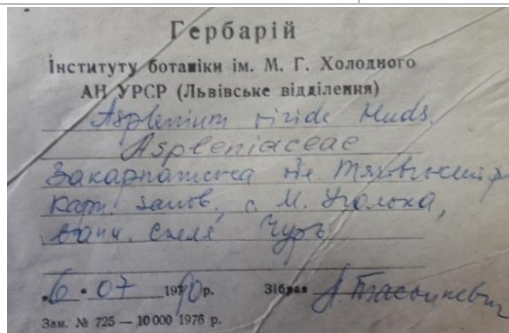 Гербарій
Інституту ботаніки ім. М. Г. Холодного
АН УРСР (Львівське відділення)
Asplenium viride Huds.
Aspleniaceae
Закарпатська
Карп. запов., с. М. Уголька,
вапн. скеля Чур
6. 07 1990р. Зібрав
Зам. № 725 — 10 000 1976 р.